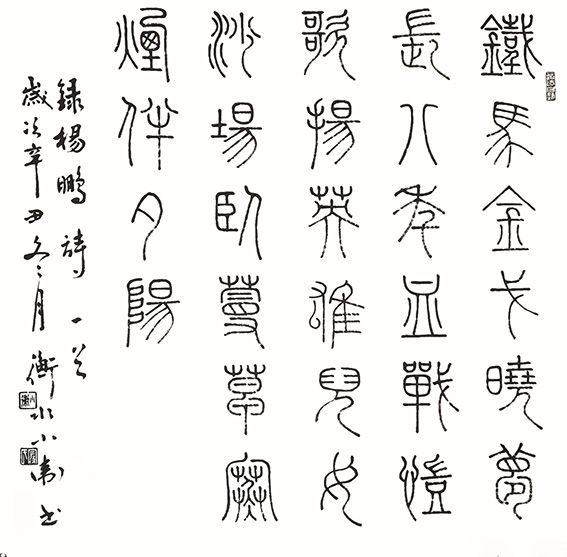 鐵馬金戈曉夢
長八年血戰愷
歌揚英雄兒女
沙場臥蔓草寒
煙伴夕陽
錄楊鵬詩一首
歲次辛丑冬月衡水小書